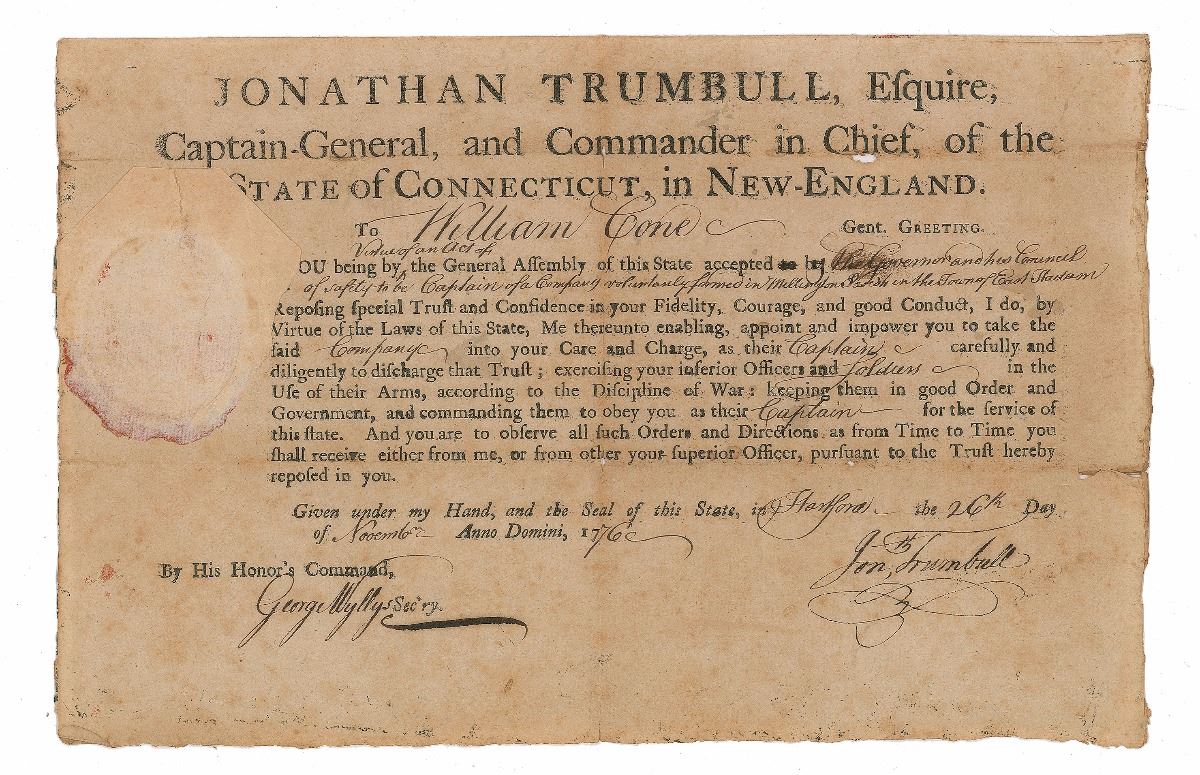 JONATHAN TRUMBULL, Eſquire,
Captain-General, and Commander in Chief, of the
STATE of CONNECTICUT, in NEW-ENGLAND.
To William Cone Gent. GREETING.
Virtue of an Act of
OU being by the General Aſſembly of this State accepted to be the Governor and his Council
of Safety to be Captain of a Company voluntarily formed in in the Town of East Haddam
Repoſing ſpecial Truſt and Confidence in your Fidelity, Courage, and good Conduct, I do, by
Virtue of the Laws of this State, Me thereunto enabling, appoint and impower you to take the
ſaid Company into your Care and Charge, as their Captain carefully and
diligently to diſcharge that Truſt; exerciſing your inferior Officers and Soldiers in the
Uſe of their Arms, according to the Diſcipline of War: keeping them in good Order and
Government, and commanding them to obey you as their Captain for the ſervice of
this ſtate. And you are to obſerve all ſuch Orders and Directions as from Time to Time you
ſhall receive either from me, or from other your ſuperior Officer, purſuant to the Truſt hereby
repoſed in you.
Given under my Hand, and the Seal of this State, in Hartford the 26th Day
of Novembr Anno Domini, 1776
By His Honor's Command,
Jonth Trumbull
George Wyllys Sec'ry.